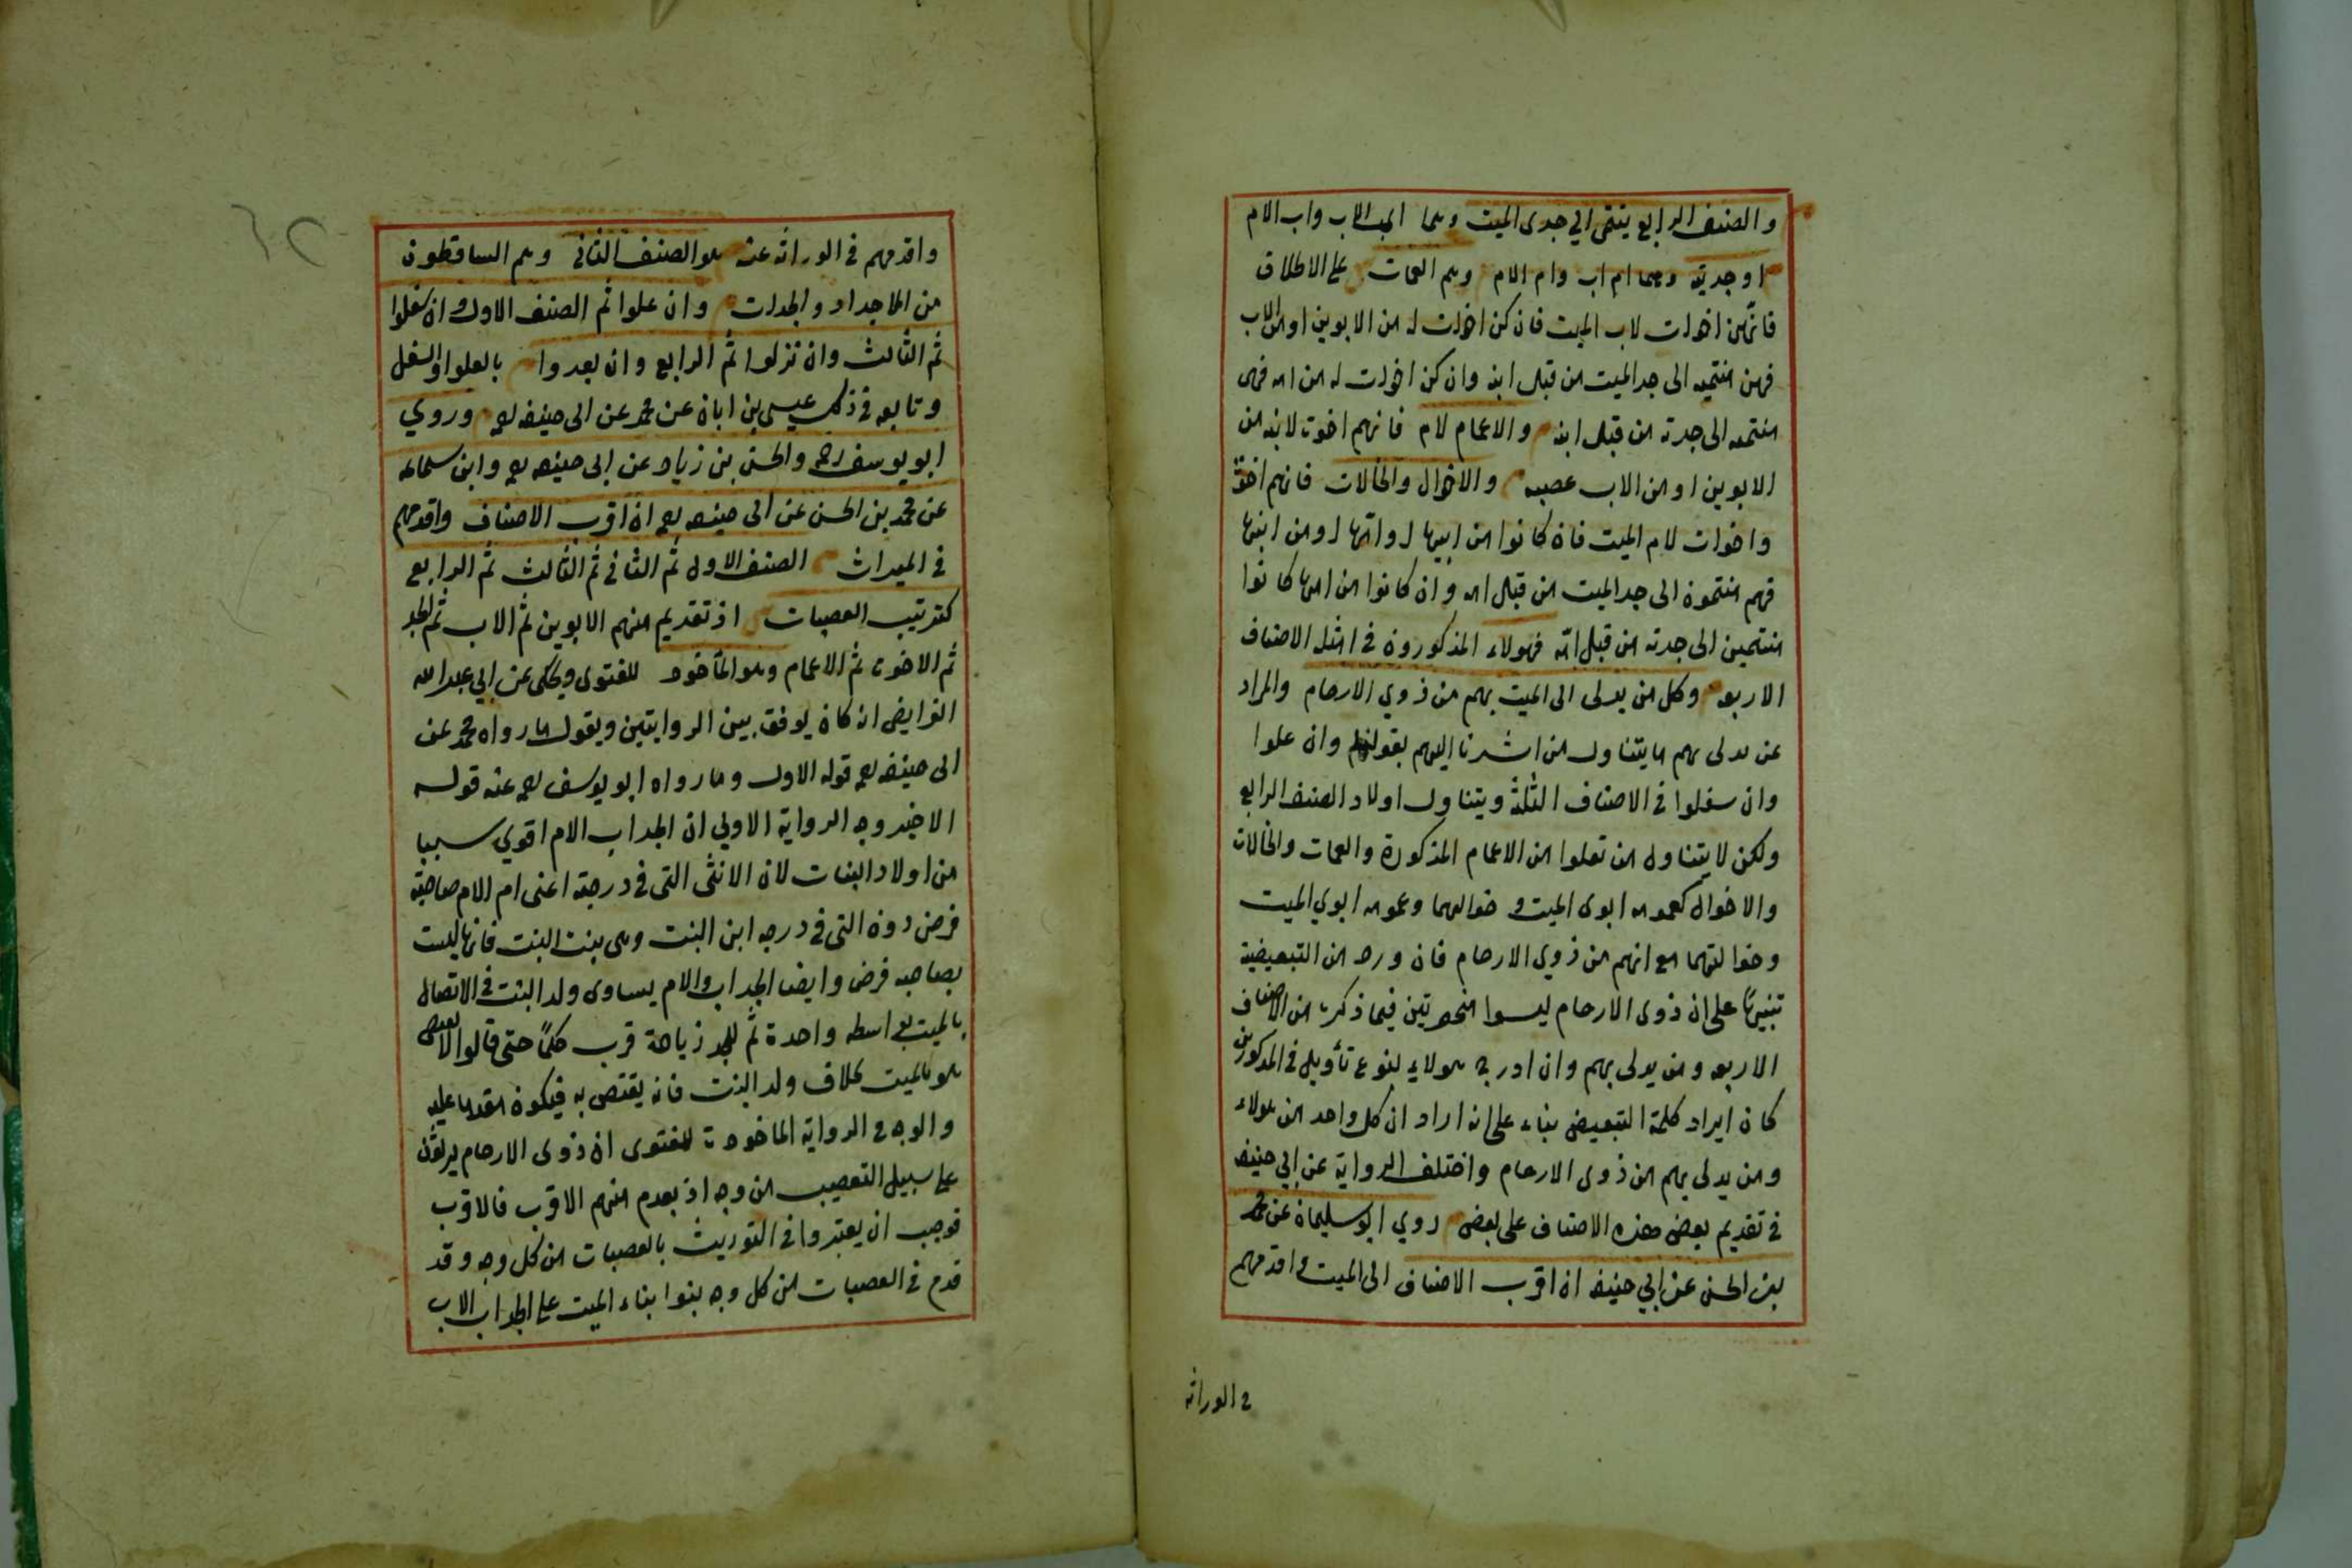 والصنف الرابع ينتمي الي جدى الميت وهما اب الاب واب الام
او جدتيه وهما ام اب وام الام وهم العمات على الاطلاق
فانهن اخوات لاب الميت فان كن اخوات له من الابوين او من الاب
فهن منتميه الى جد الميت من قبل ابيه وان كن اخوات له من امه فهى
منتميه الى جدته من قبل ابيه والاعمام لام فانهم اخوت لابيه من
الابوين او من الاب عصبه والاخوال والخالات فانهم اخوة
واخوات لام الميت فان كانوا من ابيها وامها او من ابيها
فهم منتمون الى جد الميت من قبل امه وان كانوا من امها كانوا
منتمين الى جدته من قبل امه فهولاء المذكورون فى امثله الاصناف
الاربعه وكل من يدلى الى الميت بهم من ذوي الارحام والمراد
عن يدلى بهم ما يتناول من اشرنا اليهم بقولنا وان علوا
وان سفلوا فى الاصناف الثلثة ويتناول اولاد الصنف الرابع
ولكن لا يتناول من تعلوا من الاعمام المذكورة والعمات والخالات
والاخوال كعمومه ابوى الميت و خوالهما وعمومه ابوي الميت
وخوالتهما مع انهم من ذوي الارحام فان ورد من التبعيضية
تنبيهًا على ان ذوى الارحام ليسوا منحصرتين فيما ذكرت من الاصناف
الاربعه ومن يدلى بهم وان ادرج هولاء لنوع تأويل فى المذكورين
كان ايراد كلمة التبعيض بناء على انه اراد ان كل واحد من هولاء
ومن يدلى بهم من ذوى الارحام واختلف الرواية عن ابي حنيفه
فى تقديم بعض هذه الاصناف على بعض روي ابو سليمان عن محمد
بن الحسن عن ابي حنيفه ان اقرب الاصناف الى الميت واقدمهم
فى الوراثه
واقدمهم فى الوراثه عنه هو الصنف الثانى وهم الساقطون
من الاجداد والجدات وان علوا ثم الصنف الاول وان سفلوا
ثم الثالث وان نزلوا ثم الرابع وان بعدوا بالعلو او السفل
وتابعه فى ذلك عيسى بن ابان عن محمد عن ابى حنيفه وروي
ابو يوسف رحمه والحسن بن زياد عن ابى حنيفه وابن سماعه
عن محمد بن الحسن عن ابى حنيفه ان اقرب الاصناف واقدمهم
فى الميراث الصنف الاول ثم الثانى ثم الثالث ثم الرابع
كترتيب العصبات اذ تقديم منهم الابوين ثم الاب ثم الجد
ثم الاخوت ثم الاعمام وهو المأخوذ للفتوى ويحكى عن ابي عبد الله
الفرايض انه كان يوفق بين الروايتين ويقول ما رواه محمد عن
ابى حنيفه قوله الاول وما رواه ابو يوسف عنه قوله
الاخير وجه الرواية الاولي ان الجد اب الام اقوي سببا
من اولاد البنات لان الانثى التى فى درجته اعنى ام الام صاحبة
فرض دون التى فى درجه ابن البنت وهى بنت البنت فانها ليست
بصاحبه فرض وايضا الجد اب الام يساوى ولد البنت فى الاتصال
بالميت بواسطه واحدة ثم للجد زيادة قرب حكمًا حتى قالوا لا يقتص
هو بالميت بخلاف ولد البنت فانه يقتص به فيكون مقدما عليه
والوجه فى الرواية الماخوذت للفتوى ان ذوى الارحام يرثون
على سبيل التعصيب من وجه اذ يعدم منهم الاقرب فالاقرب
فوجب ان يعتبروا فى التوريث بالعصبات من كل وجه وقد
قدم فى العصبات من كل وجه بنوا ابناء الميت على الجد اب الاب